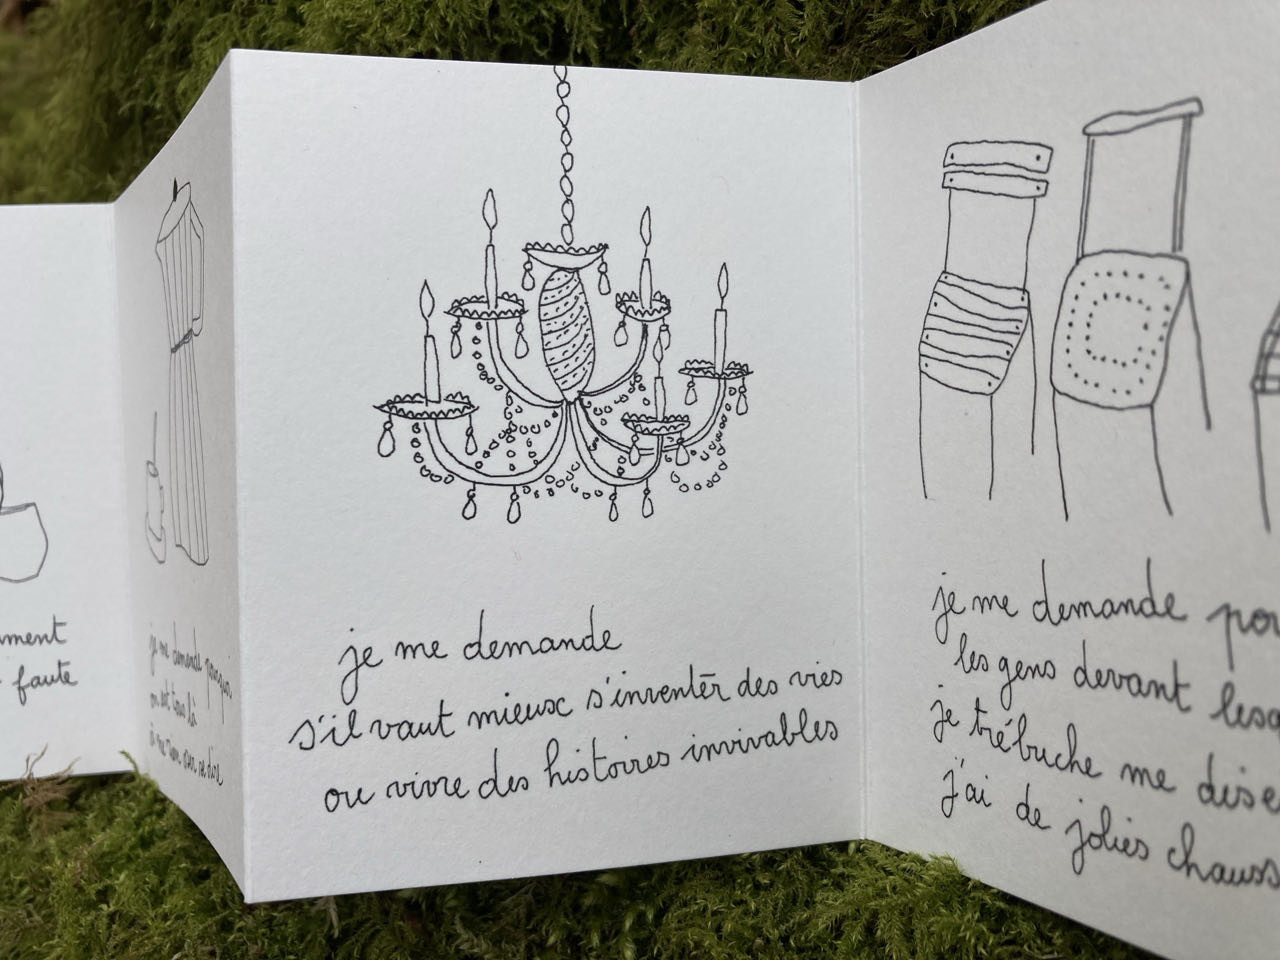 faute
je me demande pourquoi
on est tous là
à ne rien se dire
je me demande
s'il vaut mieux s'inventer des vies
ou vivre des histoires invivables
je me demande
les gens devant
je trébuche me
j'ai de jolies